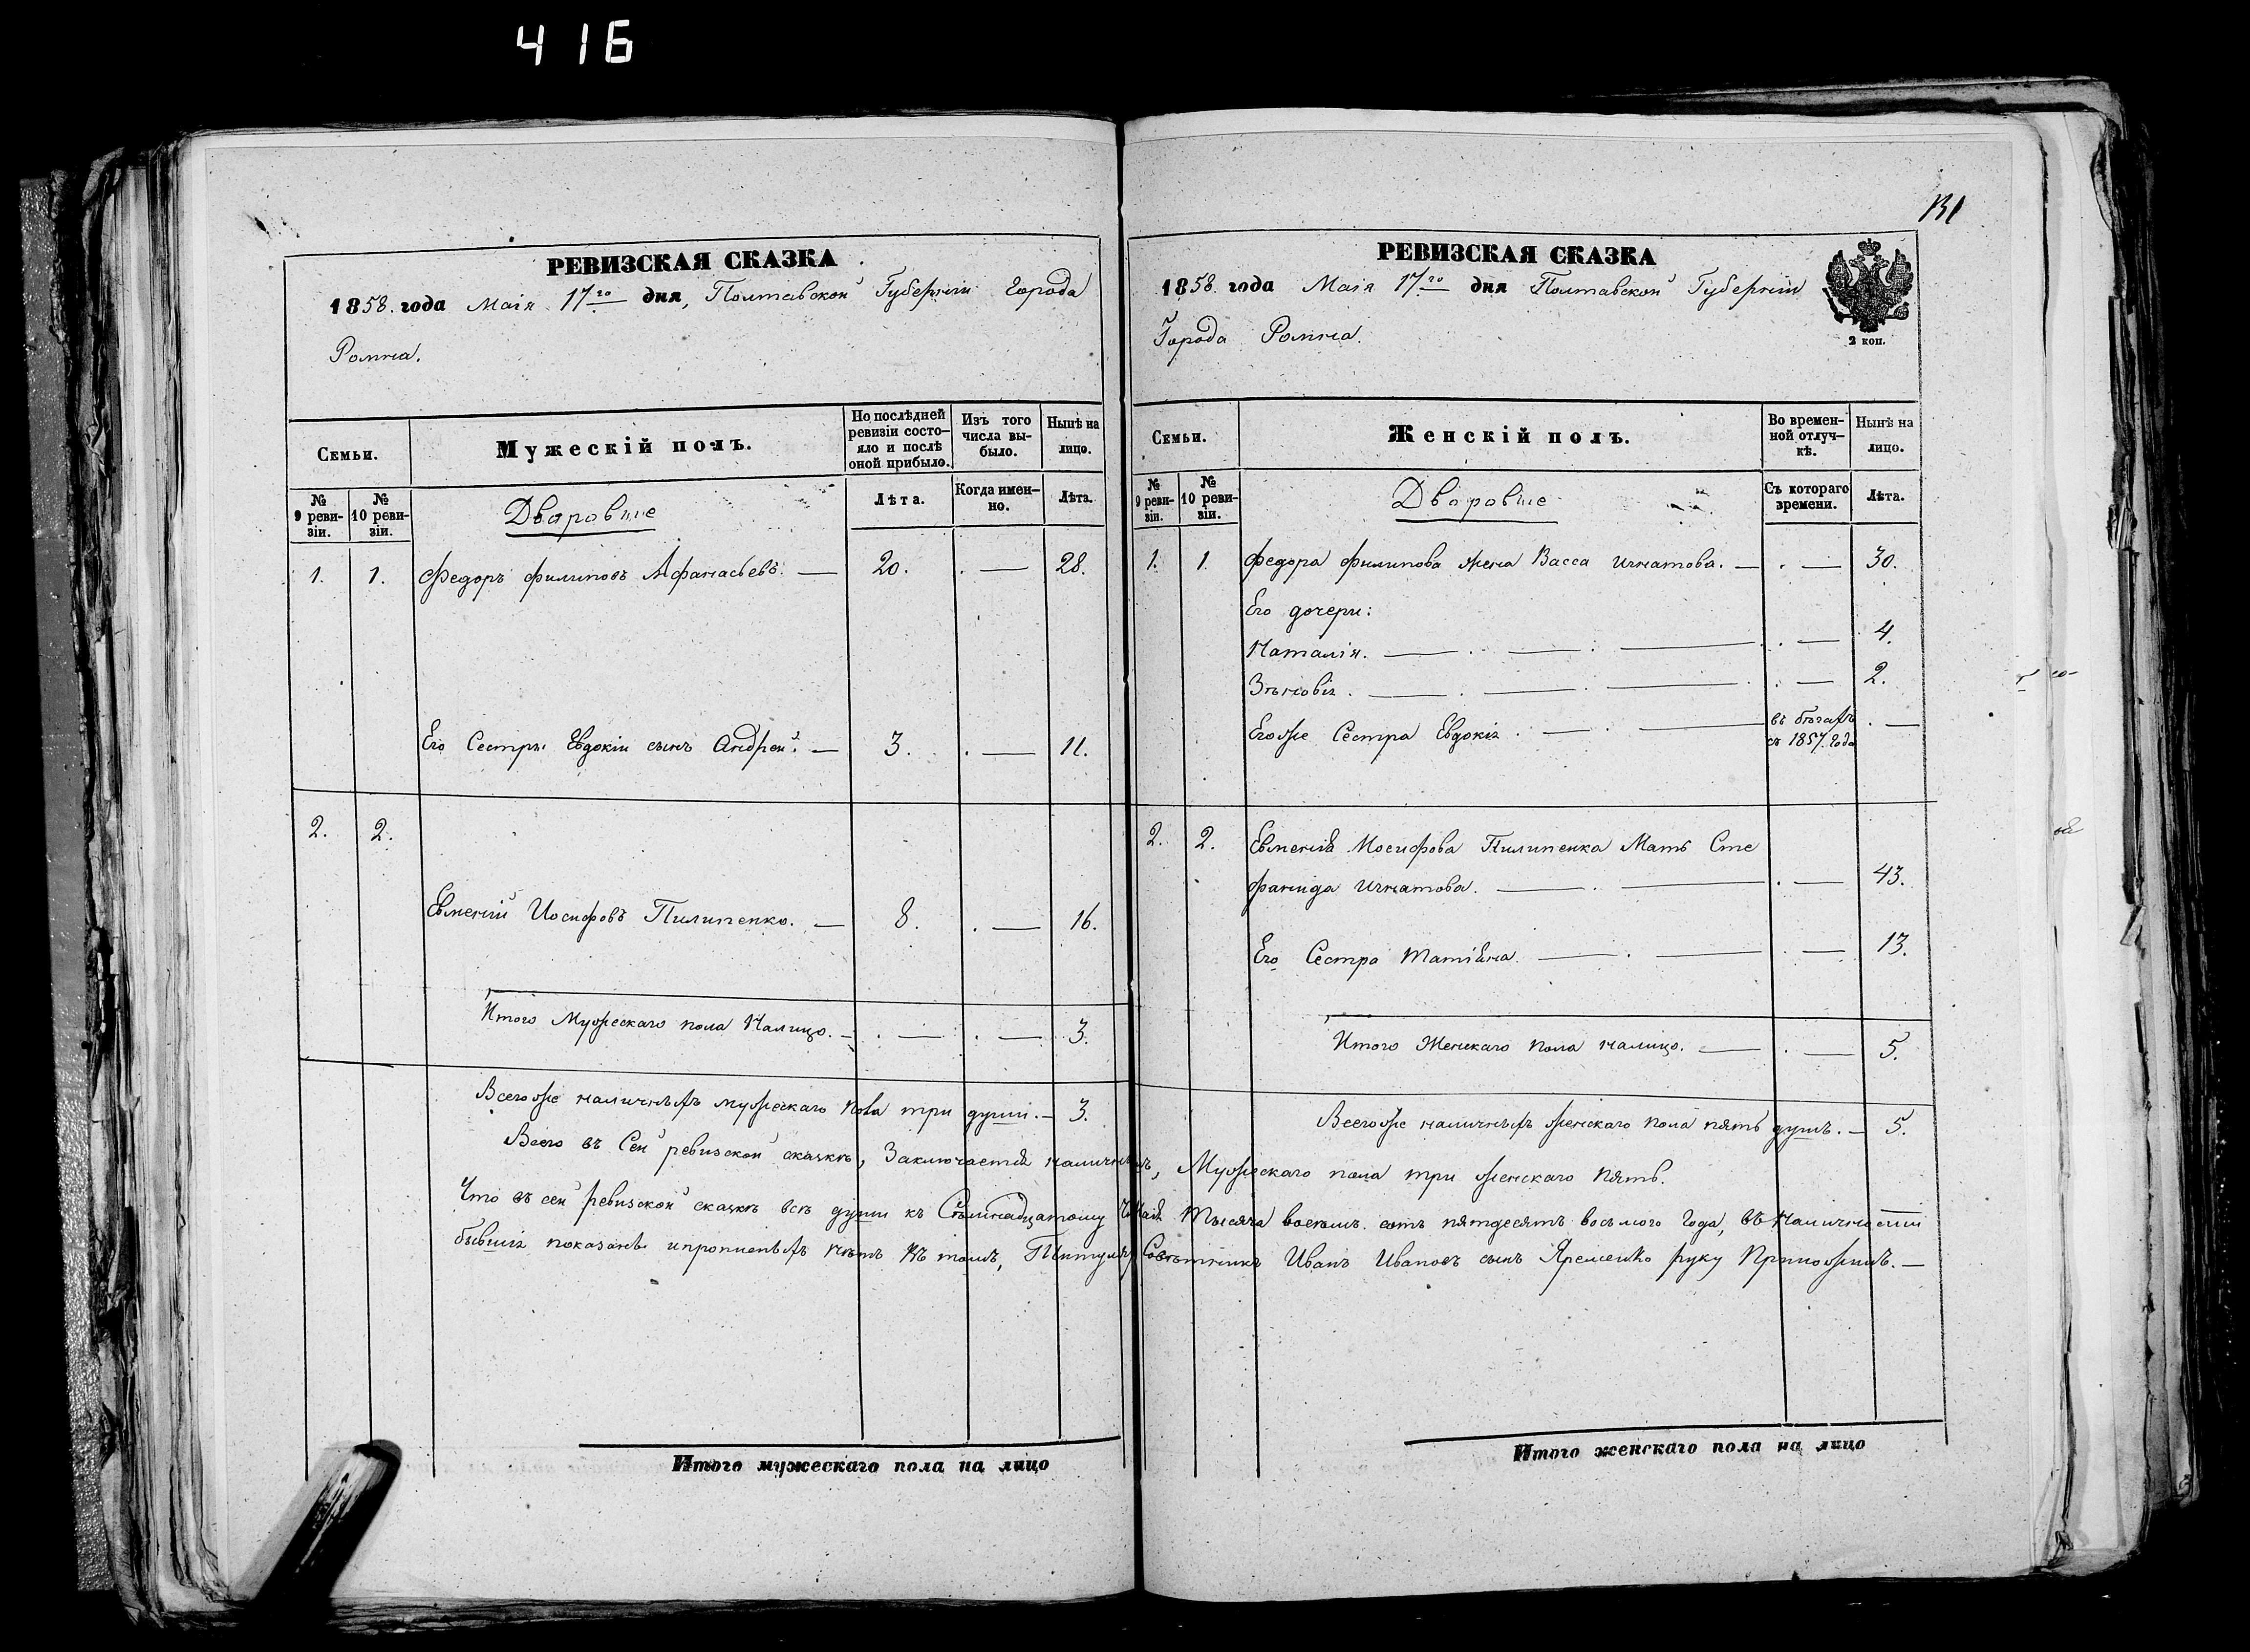 416
131
РЕВИЗСКАЯ СКАЗКА
1858. года Маія 17го дня, Полтавской Губерніи Города
Ромна.
Семьи.
Мужескій полъ.
По послѣдней ревизіи состо-яло и послѣ оной прибыло.
Изъ того числа вы-было.
Нынѣ на лицо.
№ 9 реви-зіи.
№ 10 реви-зіи.
Дворовые
Лѣта.
Когда имен-но.
Лѣта.
1. 1. Федоръ Филиповъ Афанасьевъ. — 20. . — 28.
Его Сестры Евдокіи сынъ Андрей. — 3. . — 11.
2. 2.
Евменій Иосифовъ Пилипенко. — 8. . — 16.
Итого Мужескаго пола Налицо. — . — . — 3.
Всегоже наличныхъ мужескаго пола три души. — 3.
РЕВИЗСКАЯ СКАЗКА
1858. года Маія 17го дня Полтавской Губерніи
Города Ромна.
2 коп.
Семьи.
Женскій полъ.
Во времен-ной отлуч-кѣ.
Нынѣ на лицо.
№ 9 реви-зіи.
№ 10 реви-зіи.
Дворовые
Съ котораго времени.
Лѣта.
1. 1. Федора Филипова жена Васса Игнатова. — . — 30.
Его дочери:
Наталія. — . — . — . — 4.
Зѣновія. — . — . — . — 2.
Егоже Сестра Евдокія. — . — въ бѣгахъ съ 1857. Года . —
2. 2. Евменія Иосифова Пилипенка Мать Сте
фанида Игнатова. — . — . — 43.
Его Сестра Татіяна. — . — . — 13.
Итого Женскаго пола налицо. — . — 5.
Всегоже наличныхъ женскаго пола пять душъ. — 5.
Всего въ Сей ревизской сказкѣ, Заключается наличныхъ, Мужескаго пола три женскаго пять.
Что въ сей ревизской сказкѣ всѣ души къ Семнадцатому Маія Тысяча восемь сотъ пятдесятъ восьмого Года, въ Наличности
бывшіе показаны и прописныхъ нѣтъ въ томъ, Титуляр Совѣтникъ Иванъ Ивановъ сынъ Яременко руку Приложилъ. —
Итого мужескаго пола на лицо
Итого женскаго пола на лицо